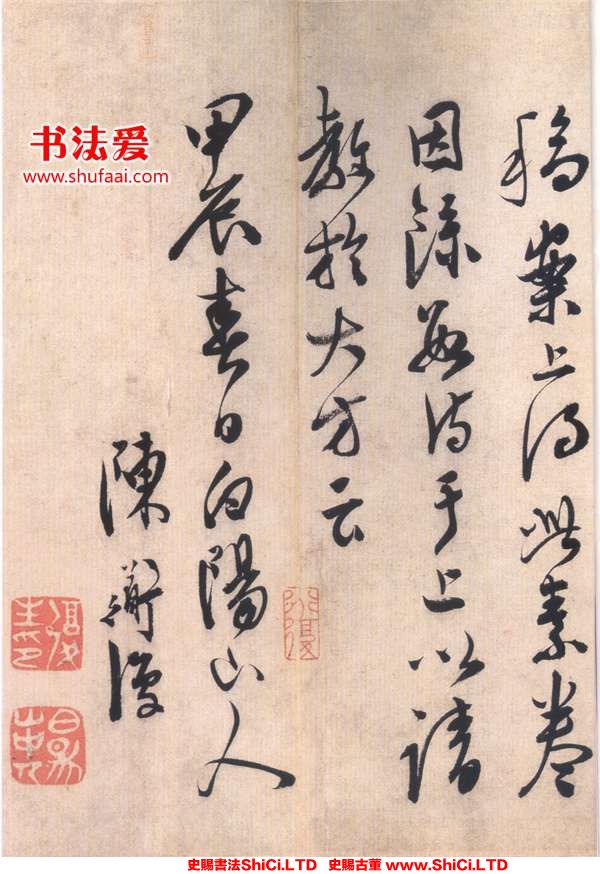 稿案上得此素卷
因录數诗于上以請
教於大方云
甲辰春日白陽山人
陳
书法爱
www.shufaai.com
史賜書法ShiCi.LTD 史賜古董 www.ShiCi.LTD